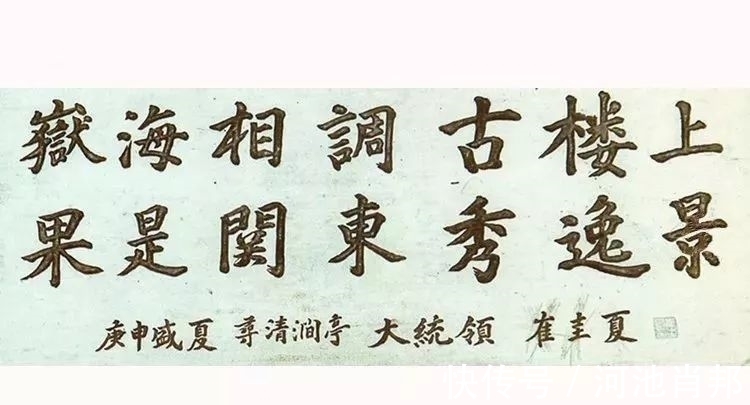 嶽海相調古楼上
果是関東秀逸景
庚申盛夏 尋清澗亭 大統領 崔圭夏
快传号 / 河池肖邦